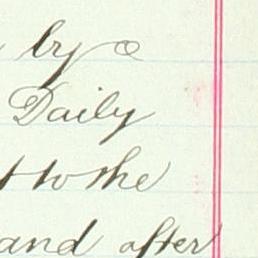 by a
Daily
t to the
and after